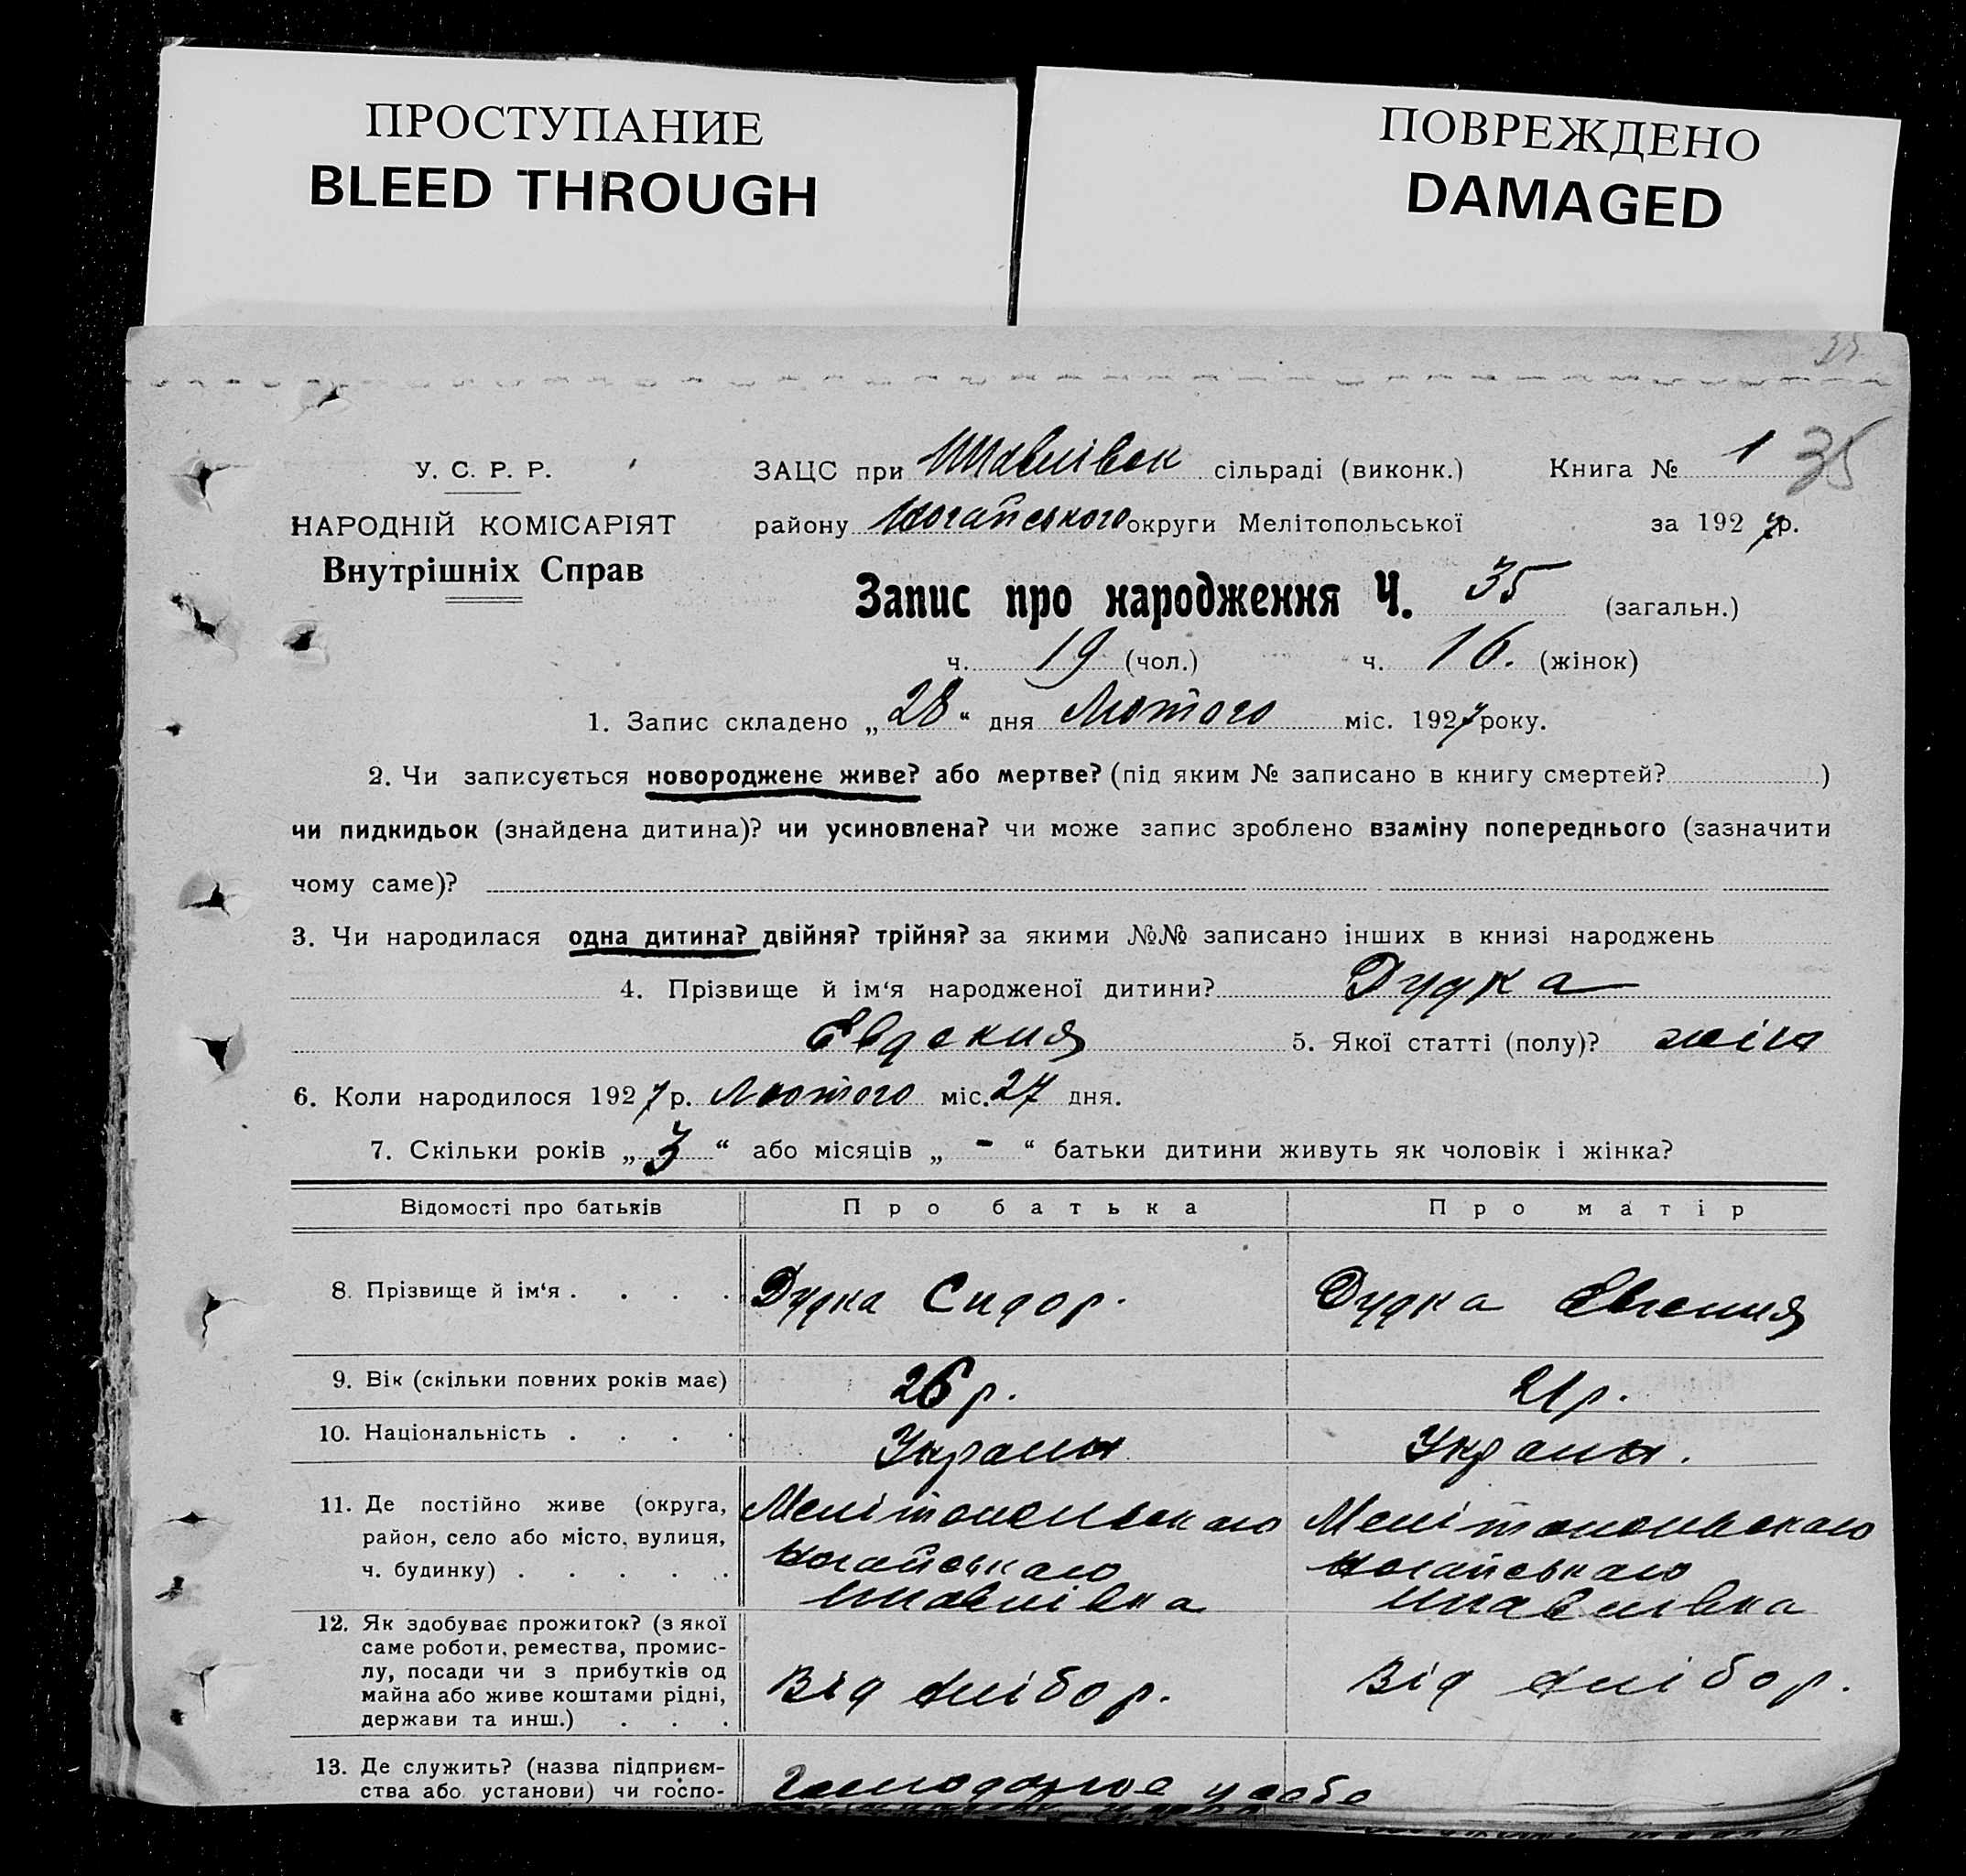 ПРОСТУПАНИЕ
BLEED THROUGH
ПОВРЕЖДЕНО
DAMAGED
35
У. С. Р. Р.
НАРОДНІЙ КОМІСАРІЯТ
Внутрішніх Справ
ЗАЦС при Шавлівск сільраді (виконк.) Книга № 1
району Ногайського округи Мелітопольської за 1927 р.
Запис про народження Ч. 35 (загальн.)
ч. 19 (чол.) ч. 16. (жінок)
1. Запис складено „28“ дня Лютого міс. 1927 року.
2. Чи записується новороджене живе? або мертве? (під яким № записано в книгу смертей? )
чи пидкидьок (знайдена дитина)? чи усиновлена? чи може запис зроблено взаміну попереднього (зазначити
чому саме)?
3. Чи народилася одна дитина? двійня? трійня? за якими №№ записано інших в книзі народжень
4. Прізвище й ім‘я народженої дитини? Дудка
Евдокия 5. Якої статті (полу)? жіно
6. Коли народилося 1927 р. Лютого міс. 27 дня.
7. Скільки років „3“ або місяців „-“ батьки дитини живуть як чоловік і жінка?
Відомості про батьків Про батька Про матір
8. Прізвище й ім‘я . . . . Дудка Сидор. Дудка Евгения
9. Вік (скільки повних років має) 26 р. 21 р.
10. Національність . . . . Украин Украин.
11. Де постійно живе (округа, Мелітопольского Мелітопольского
район, село або місто, вулиця, Ногайського Ногайського
ч. будинку) . . . . . Шавлівка Шавлівка
12. Як здобуває прожиток? (з якої
саме роботи, ремества, промис-
лу, посади чи з прибутків од
майна або живе коштами рідні, Від хлібор. Від хлібор.
держави та инш.) . . .
13. Де служить? (назва підприєм-
ства або установи) чи госпо- у себе